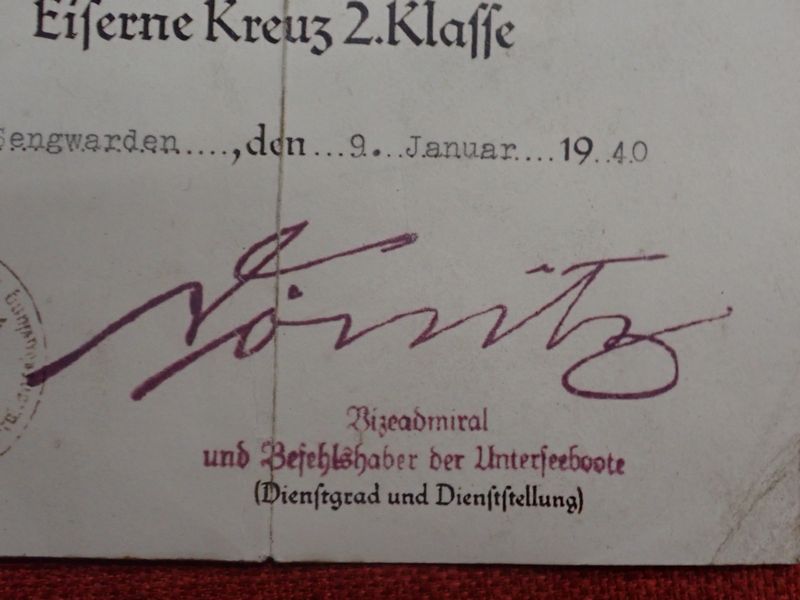 Eiserne Kreuz 2.Klasse
Sengwarden....,den...9...Januar....19..40
Dönitz
Vizeadmiral
und Befehlshaber der Unterseeboote
(Dienstgrad und Dienststellung)